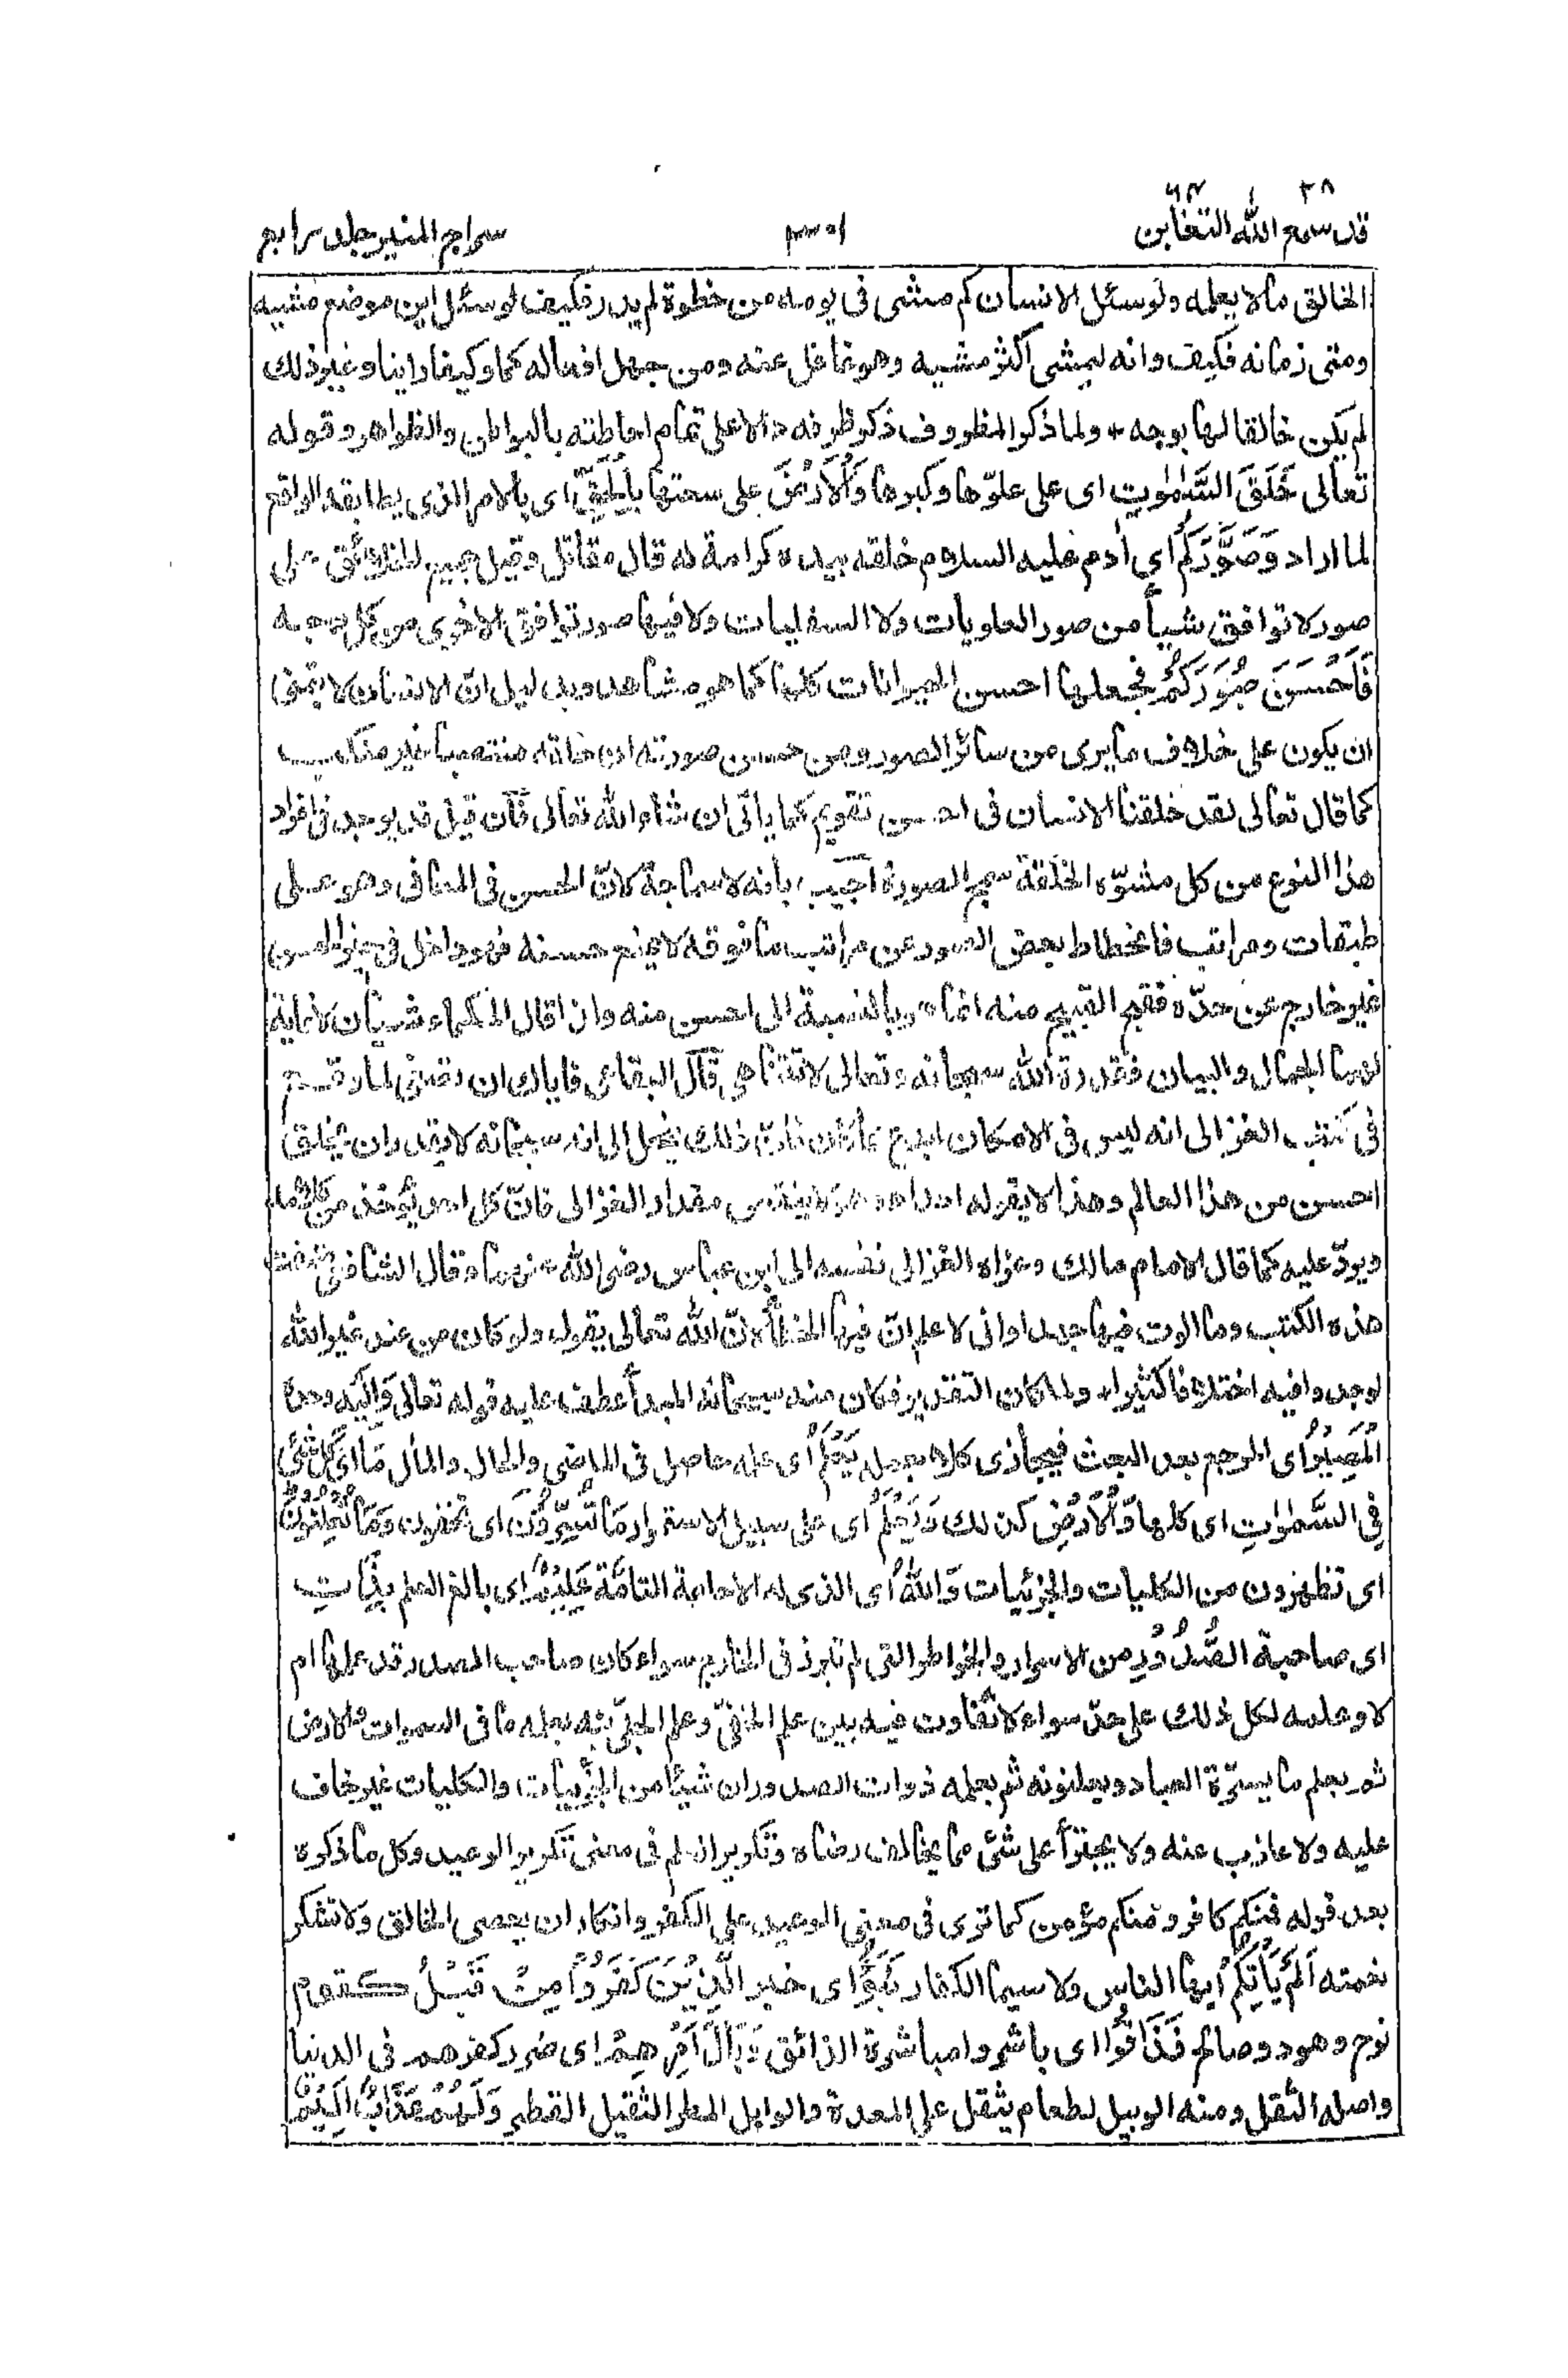 ۲۸ ۶۴
قد سمع الله التغابن ۳۰۱ سراج المنير جلد رابع
الخالق مالا يعلمه ولو سئل الانسان كم مشى فى يومه من خطوة لم يدر فكيف لو سئل اين موضع مشيه
ومتى زمانه فكيف وانه ليمشى اكثر مشيه وهو غافل عنه ومن جهل افعاله كما وكيفا واينا وغير ذلك
لم يكن خالقا لها بوجه * ولما ذكر المظروف ذكر ظرفه دالا على تمام احاطته بالبواطن والظواهر وقوله
تعالى خَلَقَ السَّمٰوٰتِ اى على علوّها وكبرها وَالْاَرْضَ على سعتها بِالْحَقِّ اى بالامر الذى يطابقه الواقع
لما اراد وَصَوَّرَكُمْ اى أدم عليه السلام خلقه بيده كرامة له قال مقاتل وقيل جميع الخلائق على
صور لا توافق شيأ من صور العلويات ولا السفليات ولا فيها صور توافق الاخرى من كل وجه
فَاَحْسَنَ صُوَرَكُمْ فجعلها احسن الحيوانات كلها كما هو مشاهد وبدليل انّ الانسان لا يتمنى
ان يكون على خلاف ما يرى من سائر الصور ومن حسن صورته ان خلقه منتصبا غير منكب
كما قال تعالى لقد خلقنا الانسان فى احسن تقويم كما يأتى ان شاء الله تعالى فان قيل قد يوجد فى افراد
هذا النوع من كل مشوّه الخلقة سمج الصورة اجيب بانه لا سماجة لانّ الحسن فى المعانى وهو على
طبقات ومراتب فانحطاط بعض الصور عن مراتب ما فوقه لا يمنع حسنه فهو داخل فى حيز الحسن
غير خارج عن حدّه فقبح القبيح منه انما هو بالنسبة الى احسن منه ولذا قال الحكماء شيأن لا غاية
لهما الجمال والبيان فقدرة الله سبحانه وتعالى لا تتناهى قال البقاعى فاياك ان تصغى لما وقع
فى كتب الغزالى انه ليس فى الامكان ابدع مما كان فانّ ذلك ينحل الى انه سبحانه لا يقدر ان يخلق
احسن من هذا العالم وهذا لا يقوله احد اهـ وهذا لا ينقص مقدار الغزالى فانّ كل احد يؤخذ من كلامه
ويردّ عليه كما قال الامام مالك وعزاه الغزالى نفسه الى ابن عباس رضى الله عنهما وقال الشافعى صنفت
هذه الكتب وما الوت فيها جهدا وانى لا علم انّ فيها الخطأ لانّ الله تعالى يقول ولو كان من عند غير الله
لوجدوا فيه اختلافا كثيرا * ولما كان التقدير فكان منه سبحانه المبدأ عطف عليه قوله تعالى وَاِلَيْهِ وحده
الْمَصِيْرُ اى المرجع بعد البعث فيجازى كلا بعمله يَعْلَمُ اى علمه حاصل فى الماضى والحال والمأل مَا اى كل شئ
فِى السَّمٰوٰتِ اى كلها وَالْاَرْضِ كذلك وَيَعْلَمُ اى على سبيل الاستمرار مَا تُسِرُّوْنَ اى تخفون وَمَا تُعْلِنُوْنَ
اى تظهرون من الكليات والجزئيات وَاللهُ اى الذى له الاحاطة التامّة عَلِيْمٌ اى بالغ العلم بِذَاتِ
اى صاحبة الصُّدُوْرِ من الاسرار والخواطر التى لم تبرز فى الخارج سواء كان صاحب الصدر قد علمها ام
لا وعلمه لكل ذلك على حدّ سواء لا تفاوت فيه بين علم الخفىّ وعلم الجلىّ نبه بعلمه ما فى السموات والارض
ثم بعلم ما يسرّه العباد ويعلنونه ثم بعلمه ذوات الصدور ان شيئا من الجزئيات والكليات غير خاف
عليه ولا عازب عنه ولا يجترأ على شئ مما يخالف رضاه وتكرير العلم فى معنى تكرير الوعيد وكل ما ذكره
بعد قوله فمنكم كافر ومنكم مؤمن كما ترى فى معنى الوعيد على الكفر وانكار ان يعصى الخالق ولا تشكر
نعمته اَلَمْ يَأْتِكُمْ ايها الناس ولا سيما الكفار نَبَؤُا اى خبر الَّذِيْنَ كَفَرُوْا مِنْ قَبْلُ كقوم
نوح وهود وصالح فَذَاقُوْا اى باشروا مباشرة الذائق وَبَالَ اَمْرِهِمْ اى ضرر كفرهم فى الدنيا
واصله الثقل ومنه الوبيل لطعام يثقل على المعدة والوابل المطر الثقيل القطر وَلَهُمْ عَذَابٌ اَلِيْمٌ